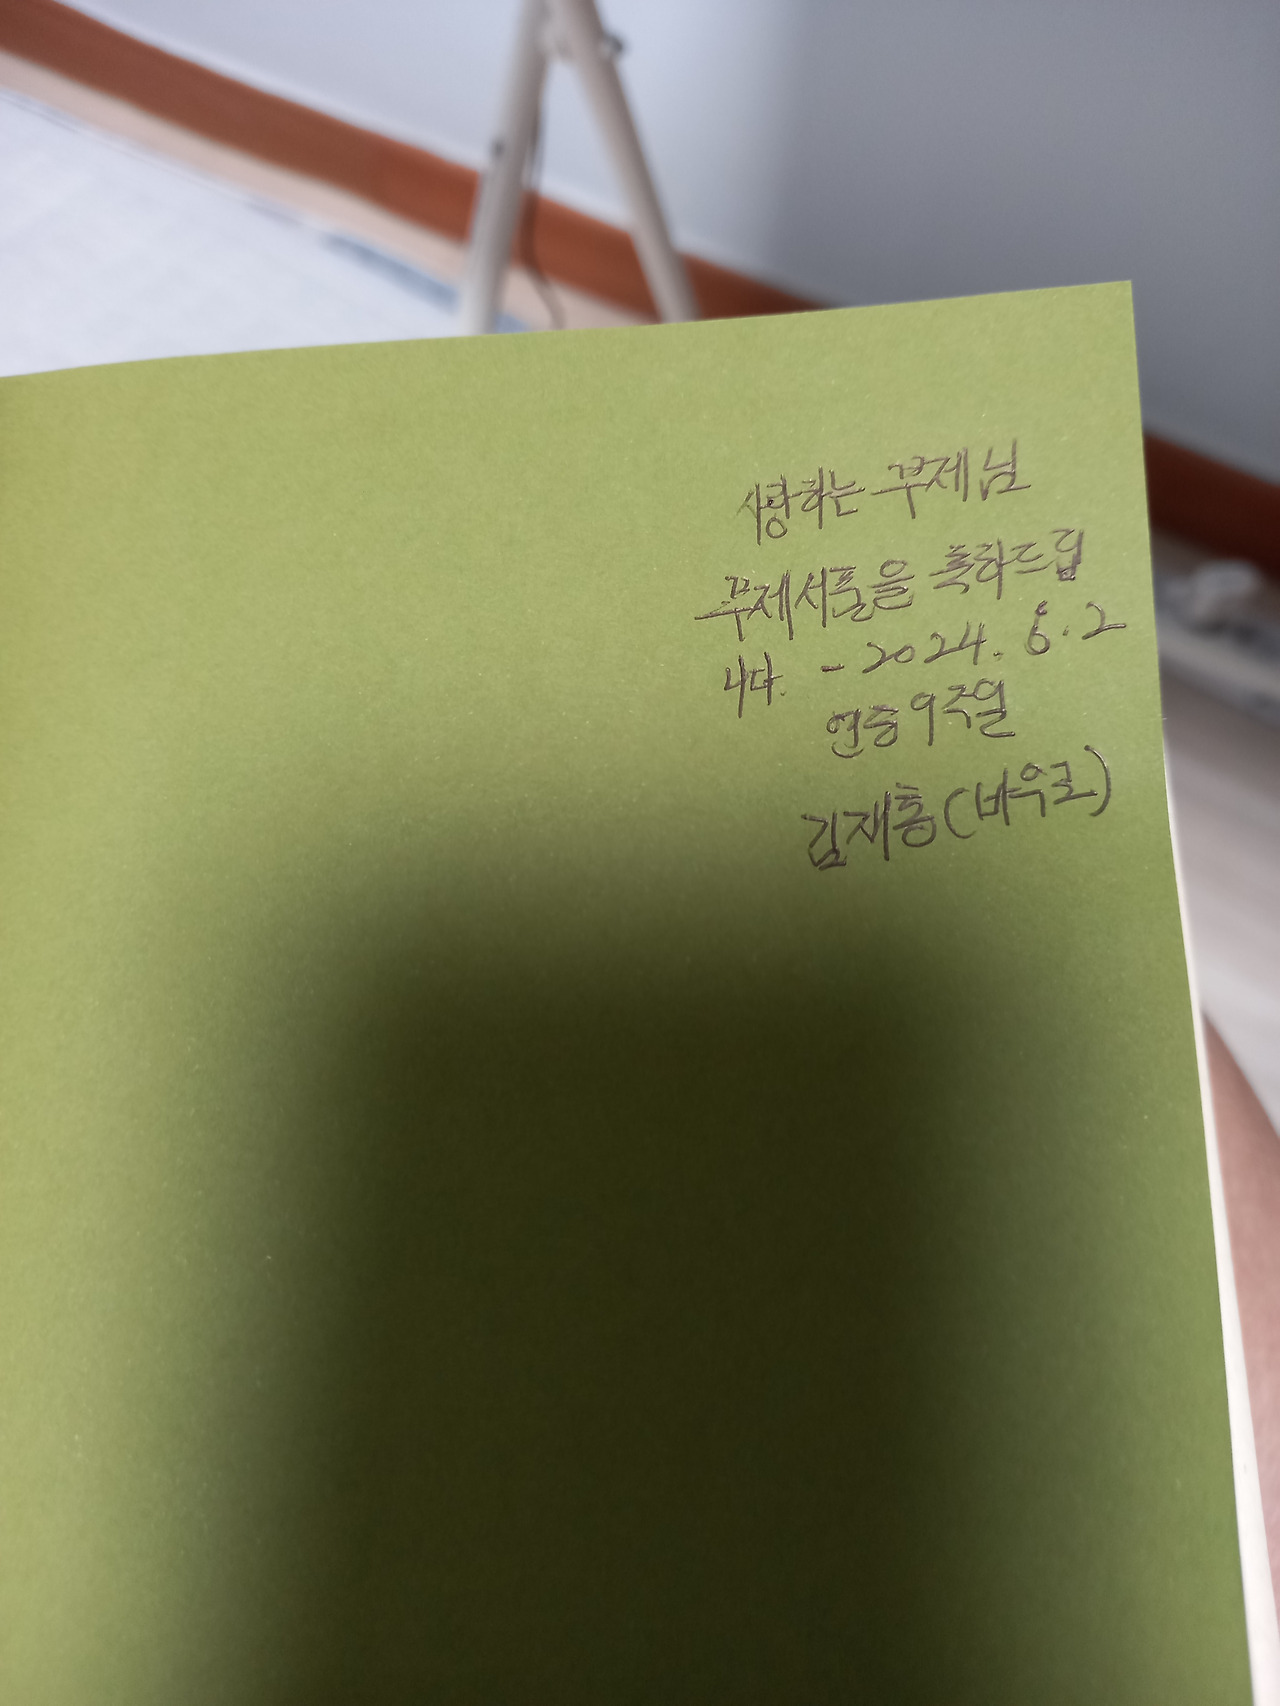 사랑하는 부제님
부제서품을 축하드립
니다. - 2024. 6. 2
연중 9주일
김재홍(바우로)